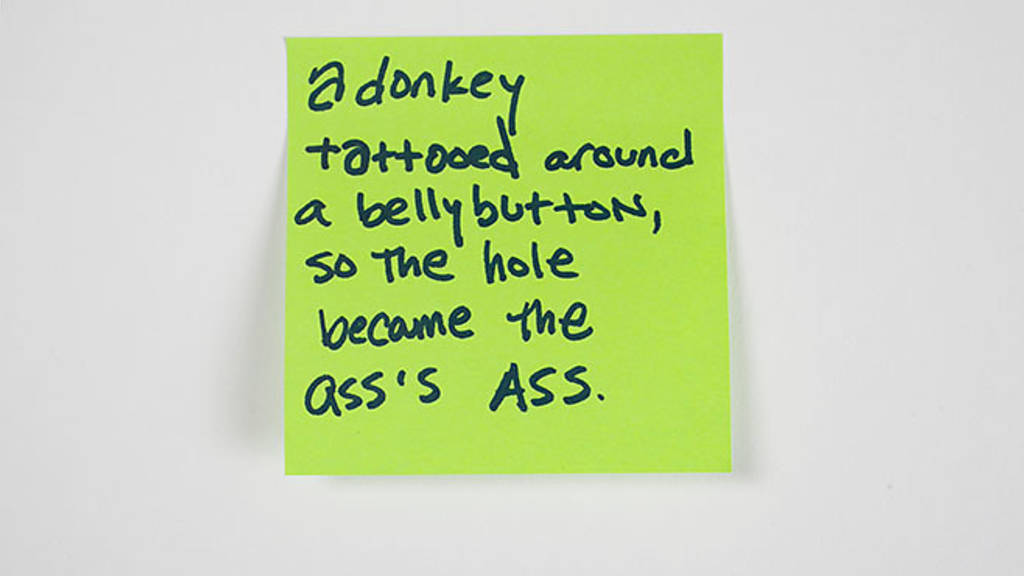 a donkey
tattooed around
a bellybutton,
so the hole
became the
ass's ASS.